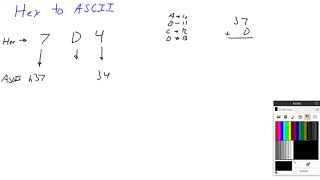 Hex to ASCII
Hex → 7 D 4
ASCII h37 34
A → 10
B → 11
C → 12
D → 13
37
+ D